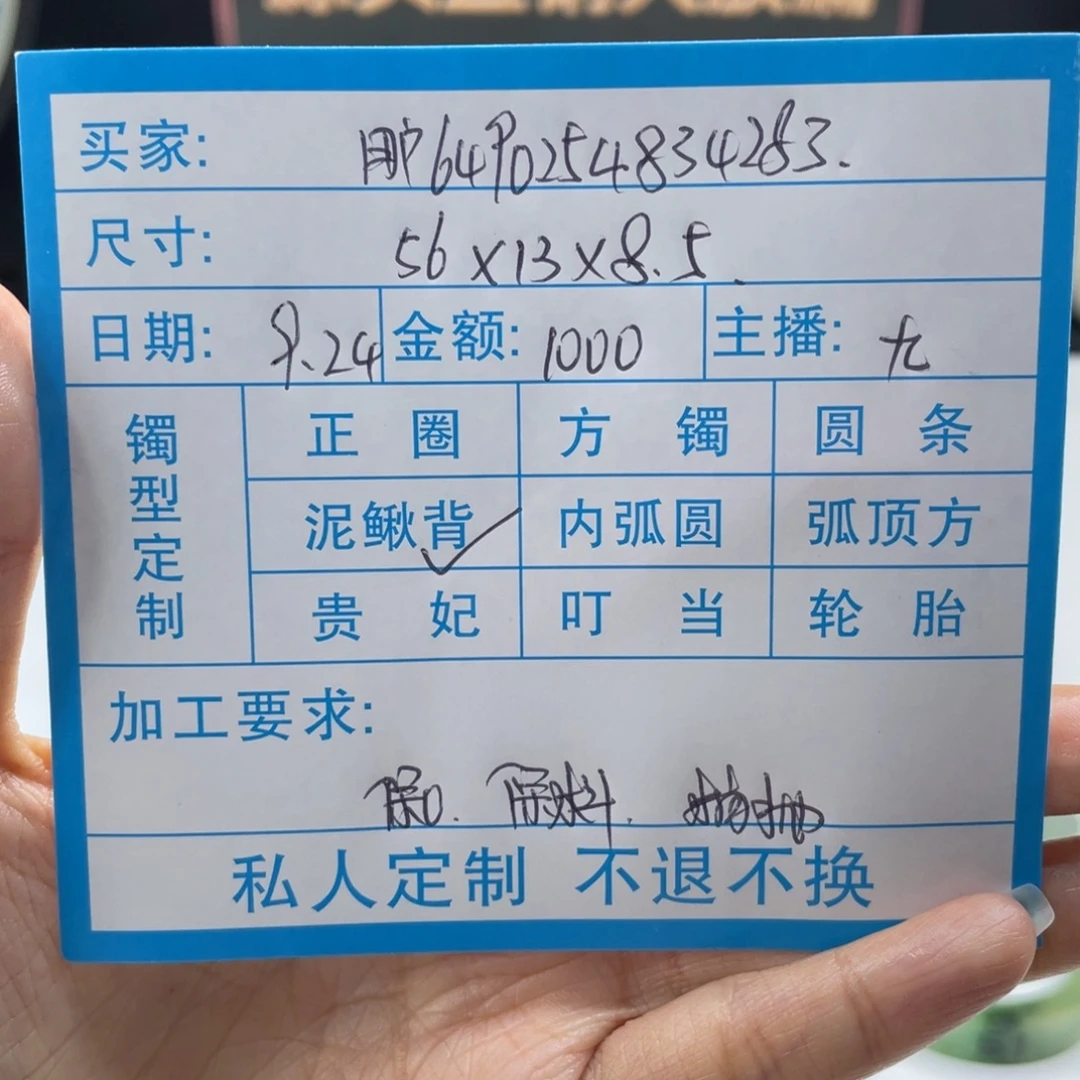 买家: 用户6490254834283.
尺寸: 56×13×8.5.
日期: 9.24 金额: 1000 主播: 九
镯型定制
正圈 方镯 圆条
泥鳅背 ✓ 内弧圆 弧顶方
贵妃 叮当 轮胎
加工要求:
保口. 保水料. 精抛
私人定制 不退不换